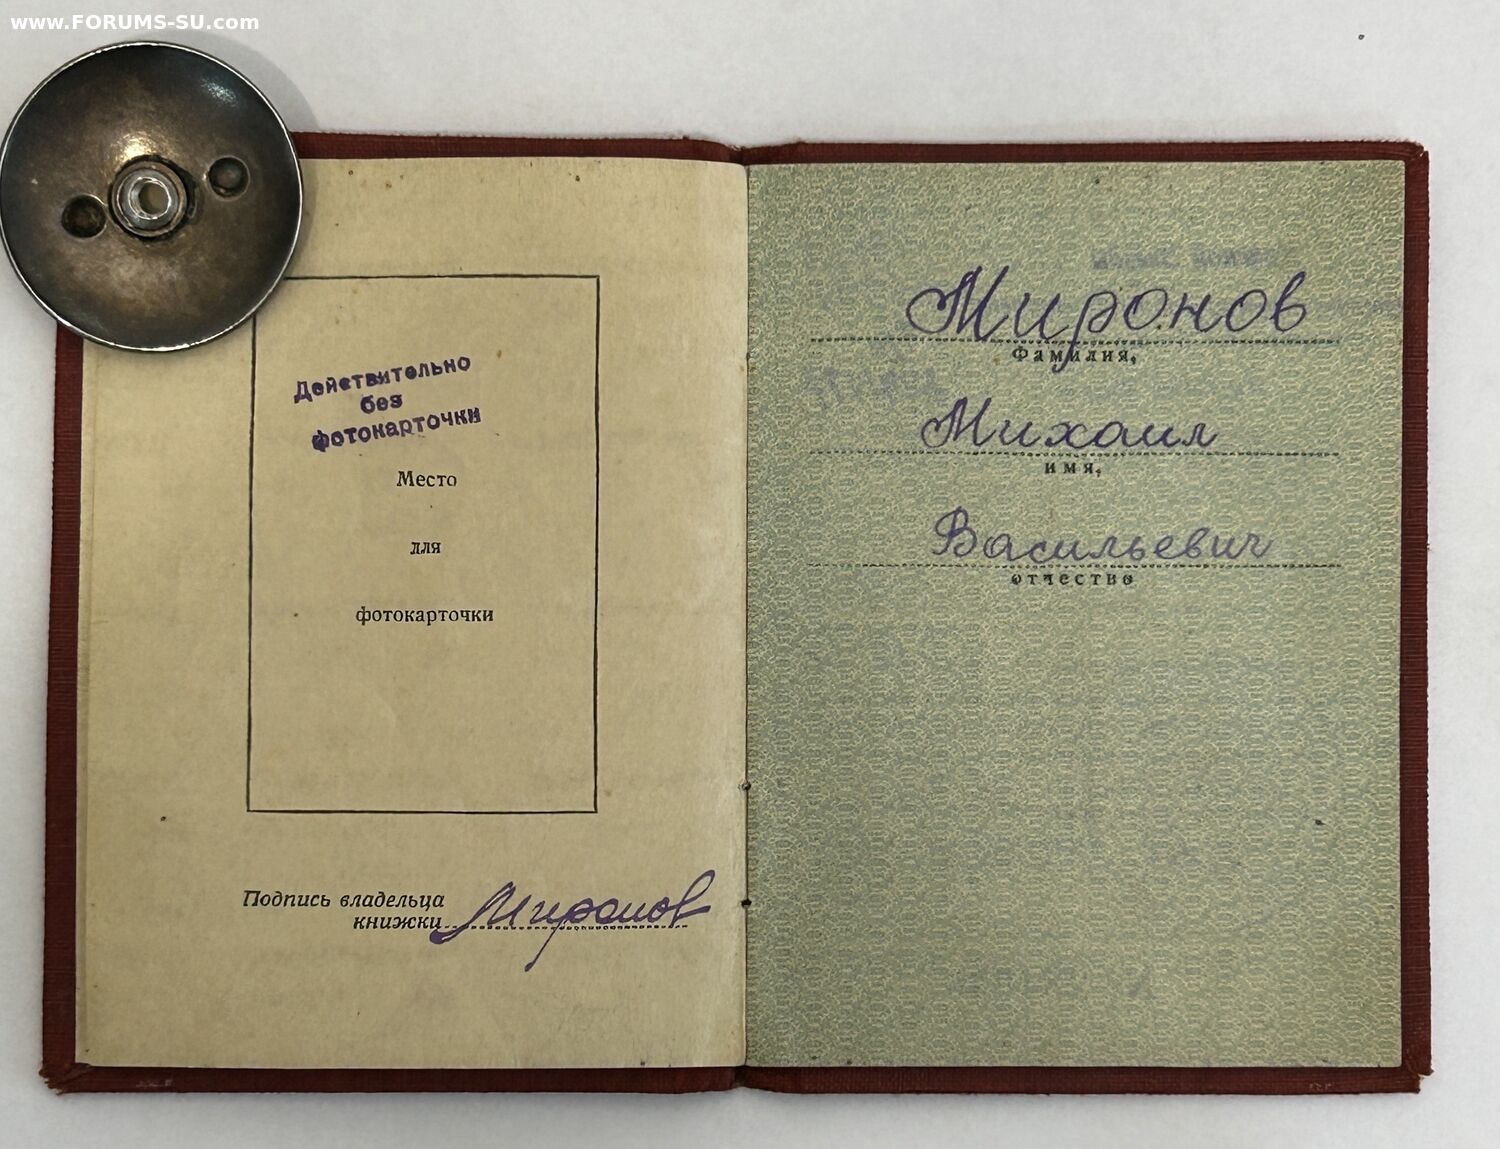 www.FORUMS-SU.com
Действительно
без
фотокарточки
Место
для
фотокарточки
Подпись владельца
книжки Миронов
Миронов
Фамилия,
Михаил
имя,
Васильевич
отчество